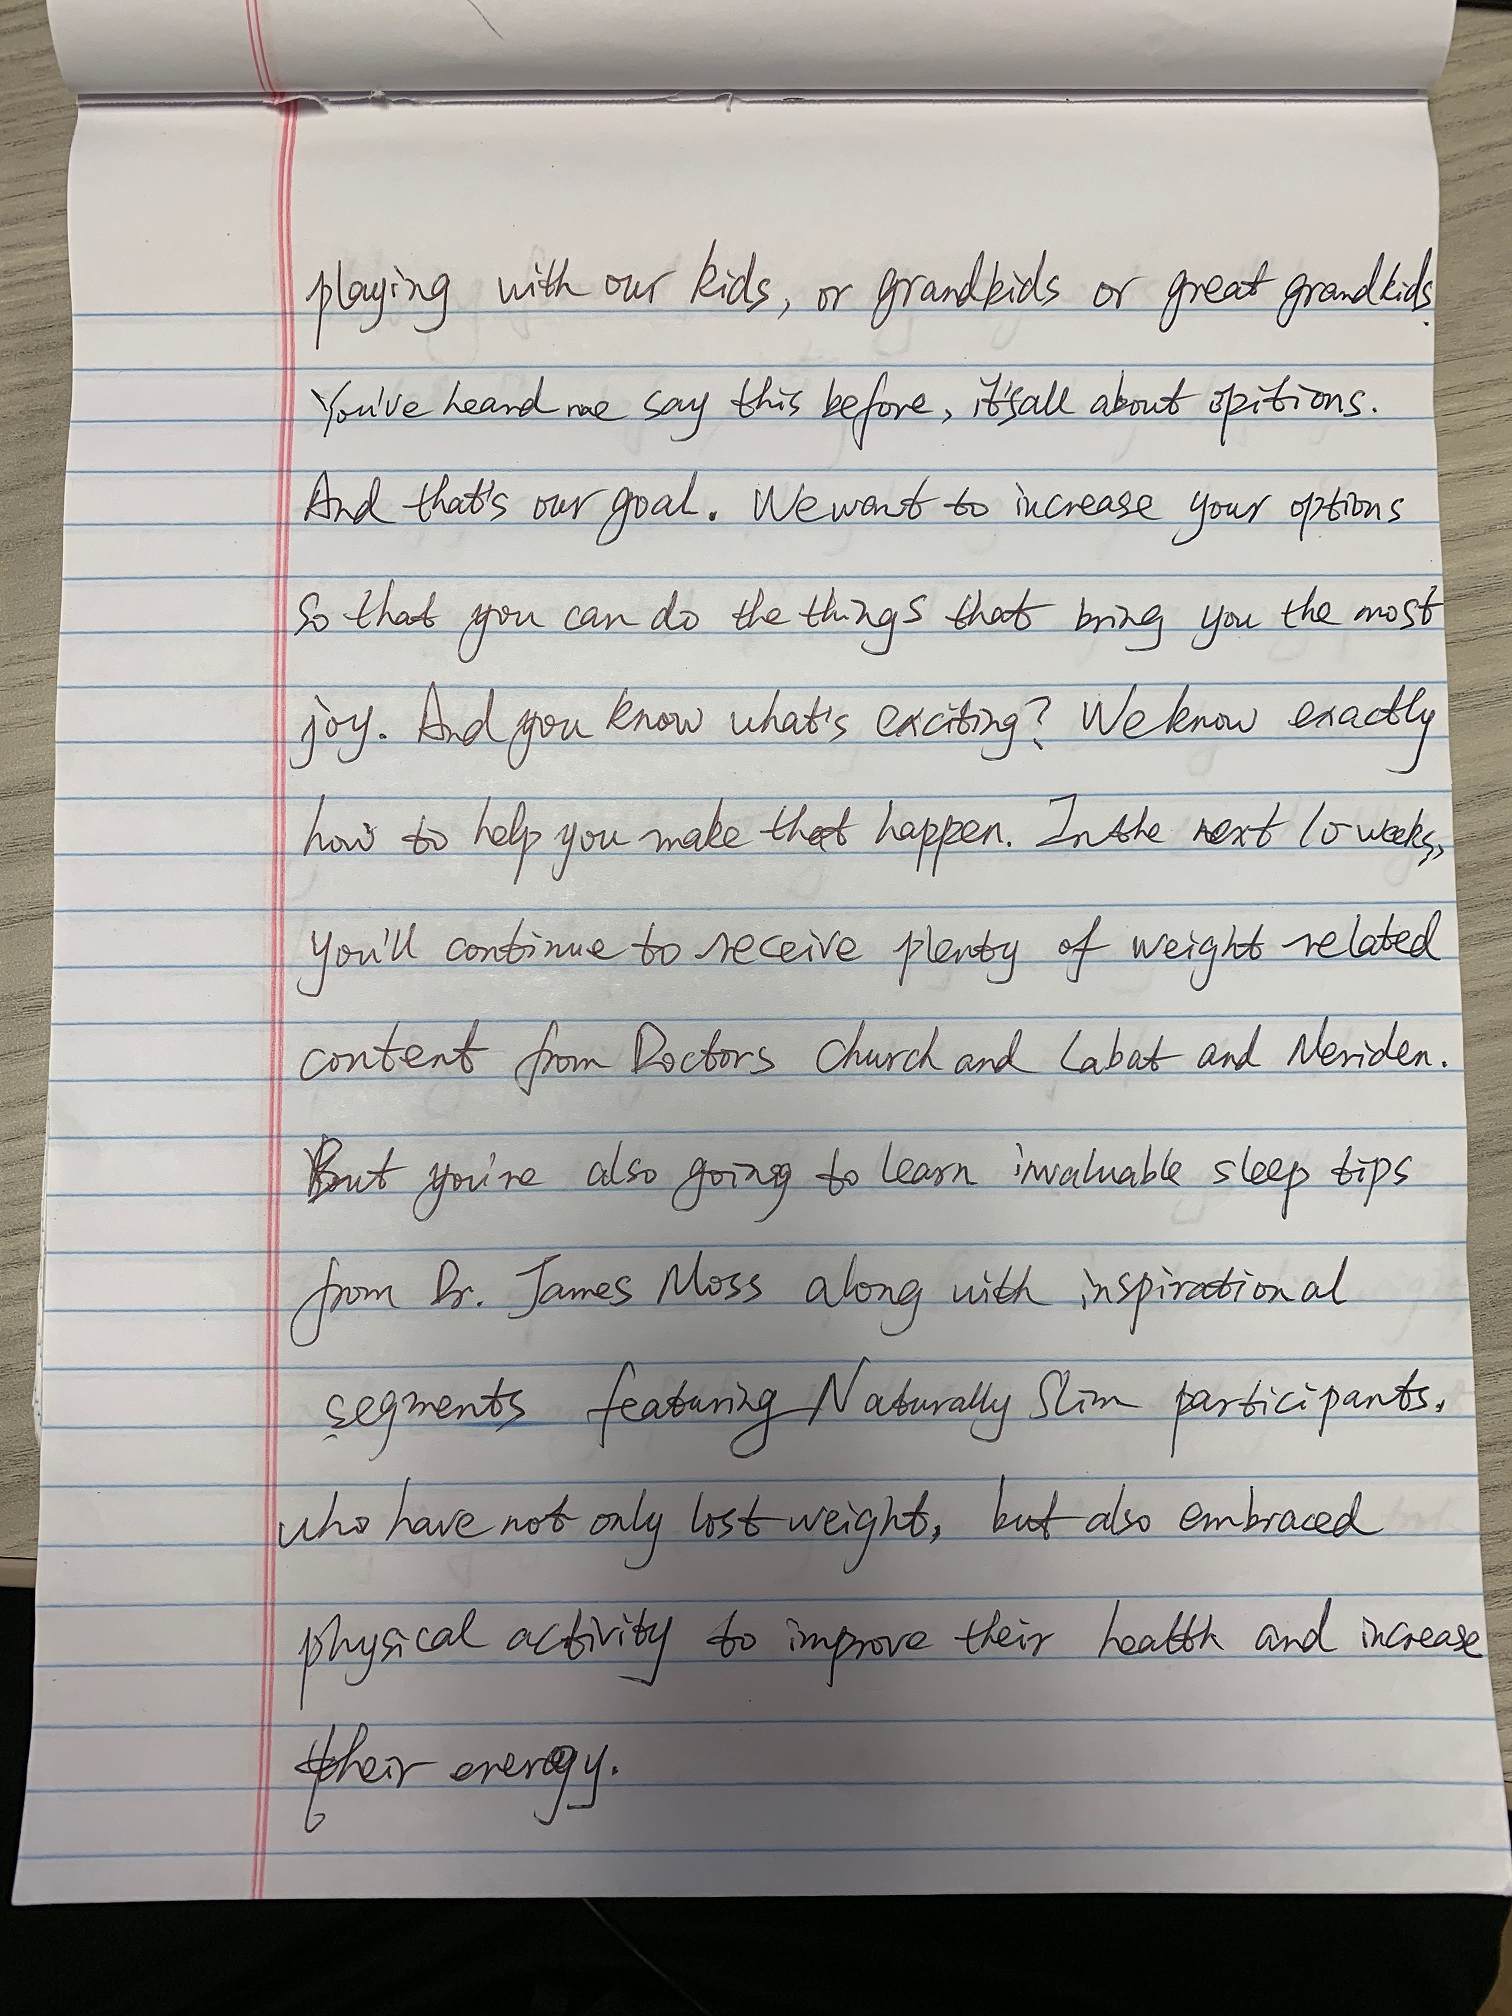 playing with our kids, or grandkids or great grandkids.
You've heard me say this before, it's all about opitions.
And that's our goal. We want to increase your options
So that you can do the things that bring you the most
joy. And you know what's exciting? We know exactly
how to help you make that happen. In the next 10 weeks,
you'll continue to receive plenty of weight related
content from Doctors Church and Labat and Meriden.
But you're also going to learn invaluable sleep tips
from Dr. James Moss along with inspirational
segments featuring Naturally Slim participants,
who have not only lost weight, but also embraced
physical activity to improve their health and increase
their energy.